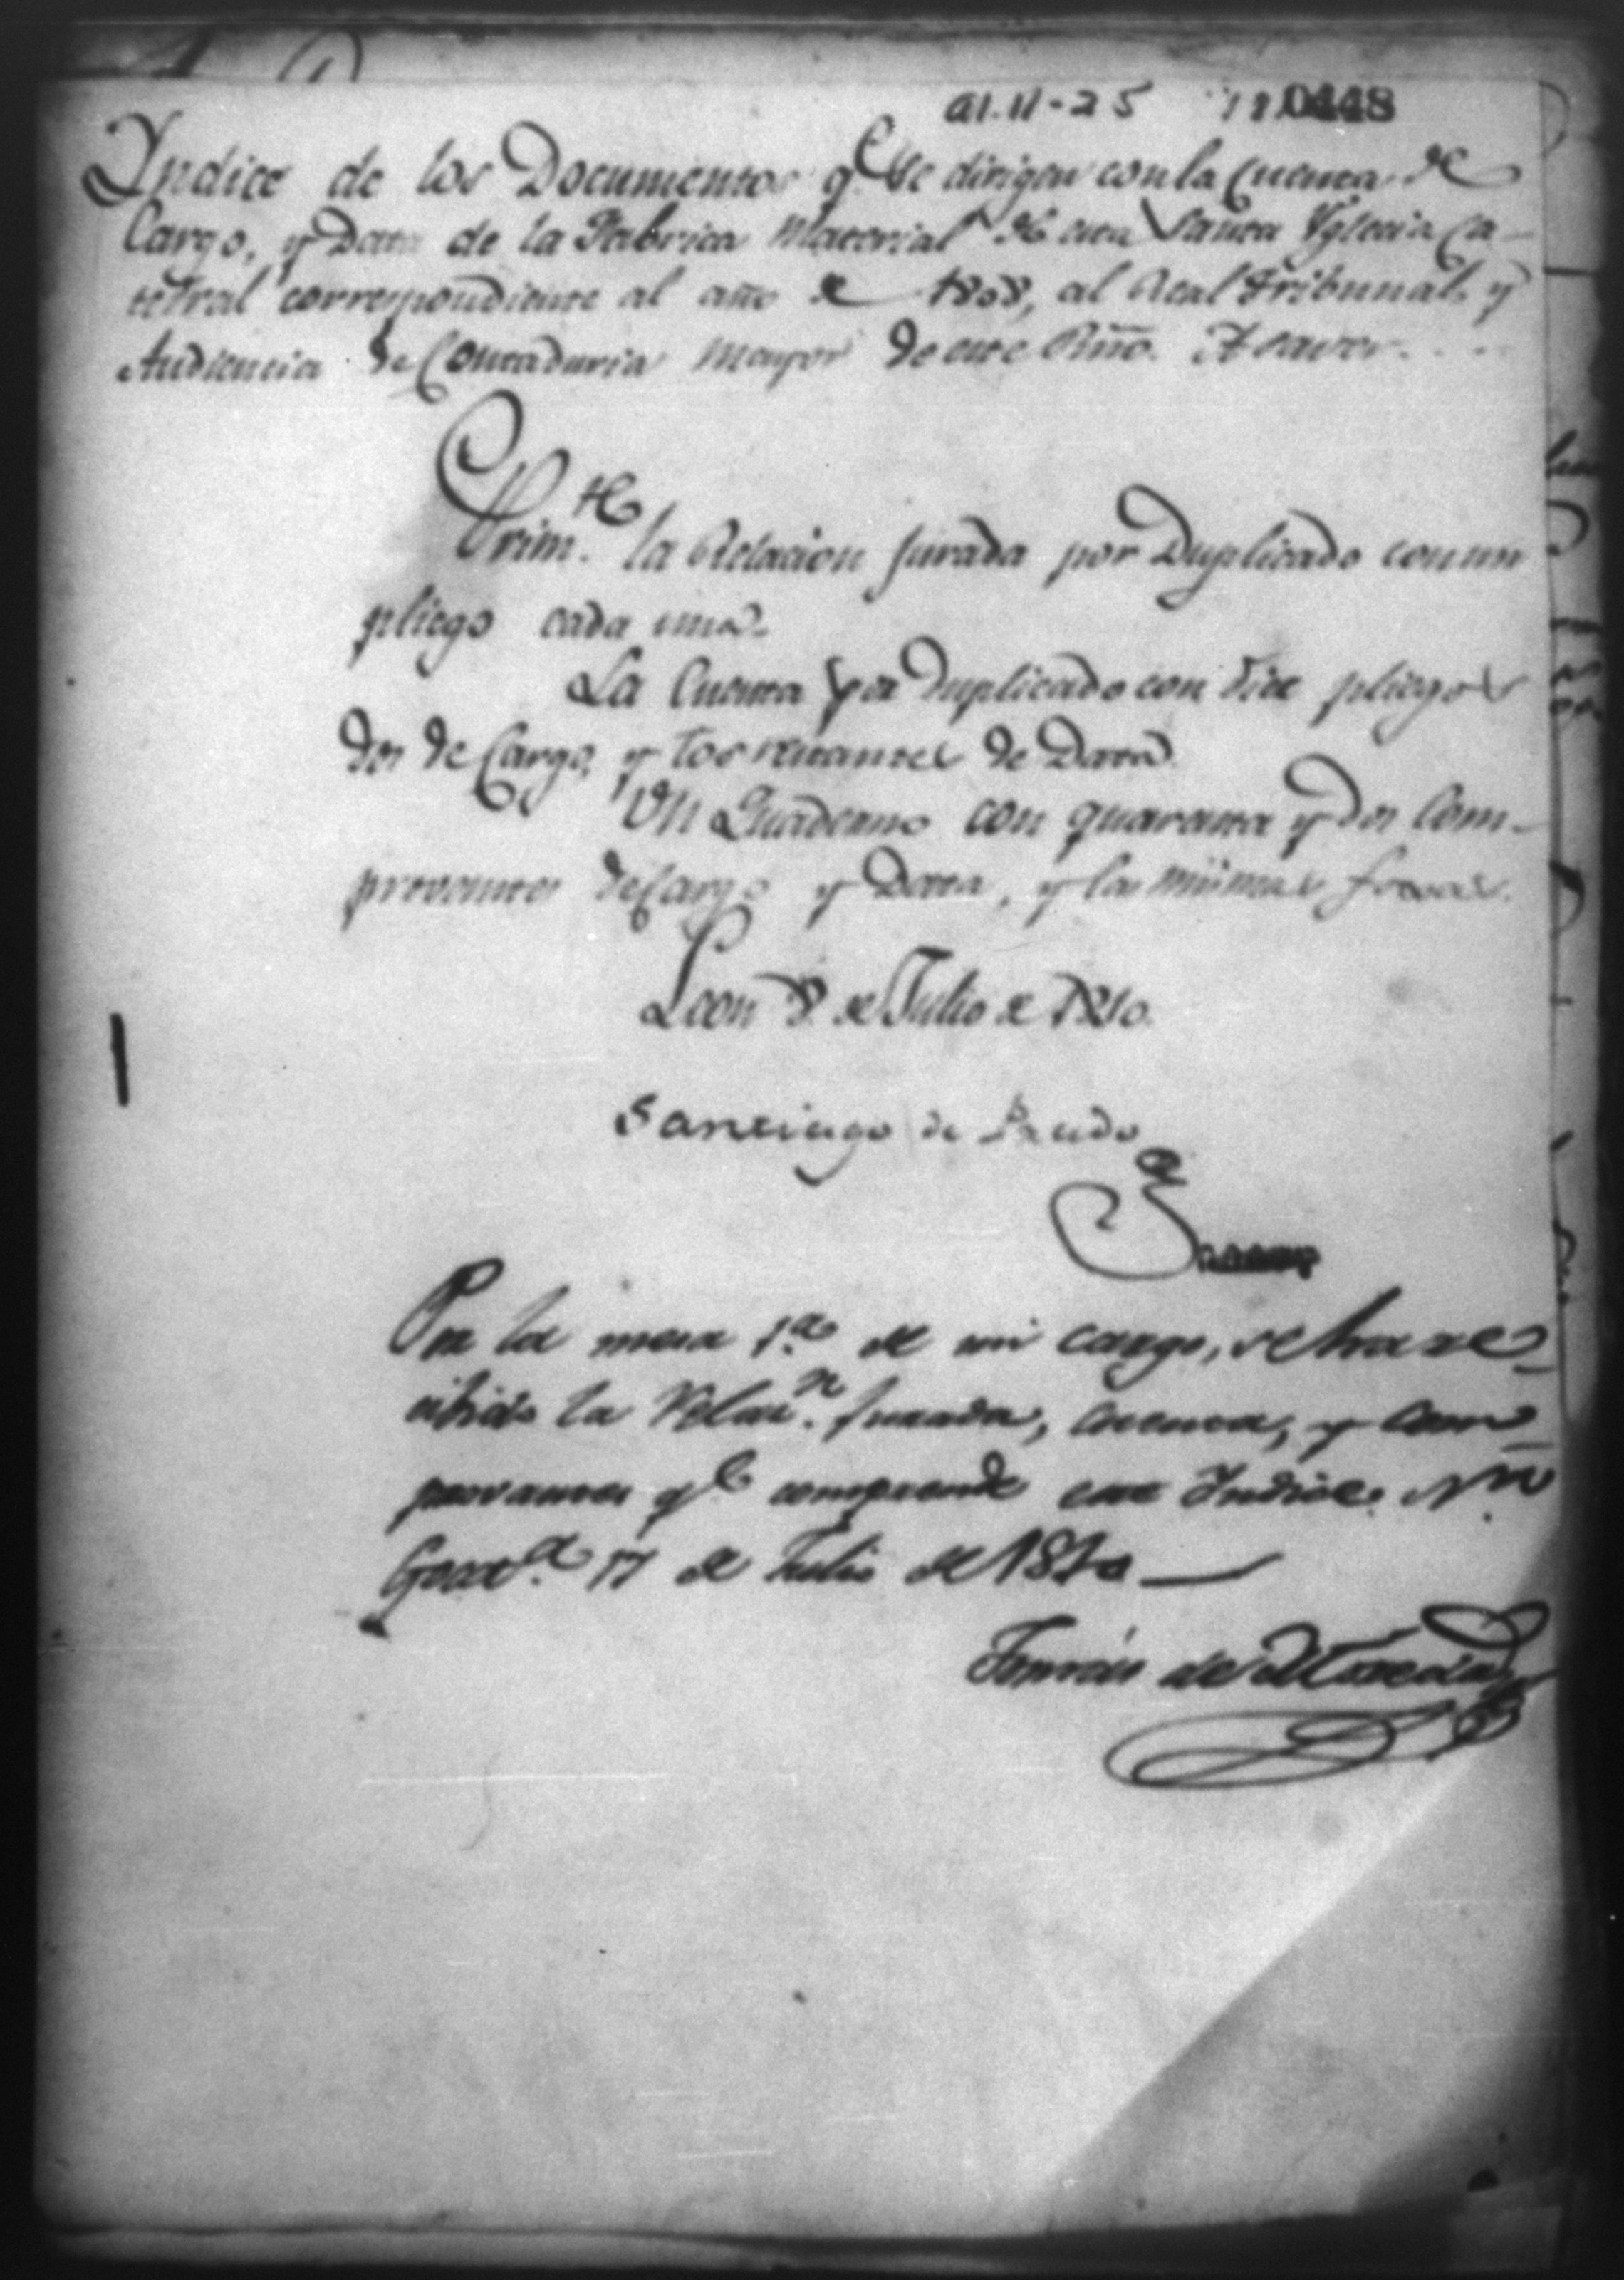 A1.11-25 0448
Yndice de los Documentos q.e se dirigen con la cuenta de
Cargo, y Data de la Fabrica Material de esta Santa Yglesia Ca-
tetral correspondiente al año de 1808, al Real Tribunal, y
Audiencia de Contaduria mayor de este Rño. A saver. . . .
Prim.te la Relacion jurada por Duplicado con un
pliego cada una.
La Cuenta por duplicado con diez pliegos
dos de Cargo, y los restantes de Data.
Un Quaderno con quarenta y dos Com-
provantes de Cargo y Data, y las mismas foxas.
Leon 8 de Julio de 1810.
Santiago de Pardo
En la mesa 1.a de mi cargo, se han re-
cibido la Relaz.n jurada, cuenta, y com-
provantes q.e comprende este Indice.
Goat.a 17 de Julio de 1810